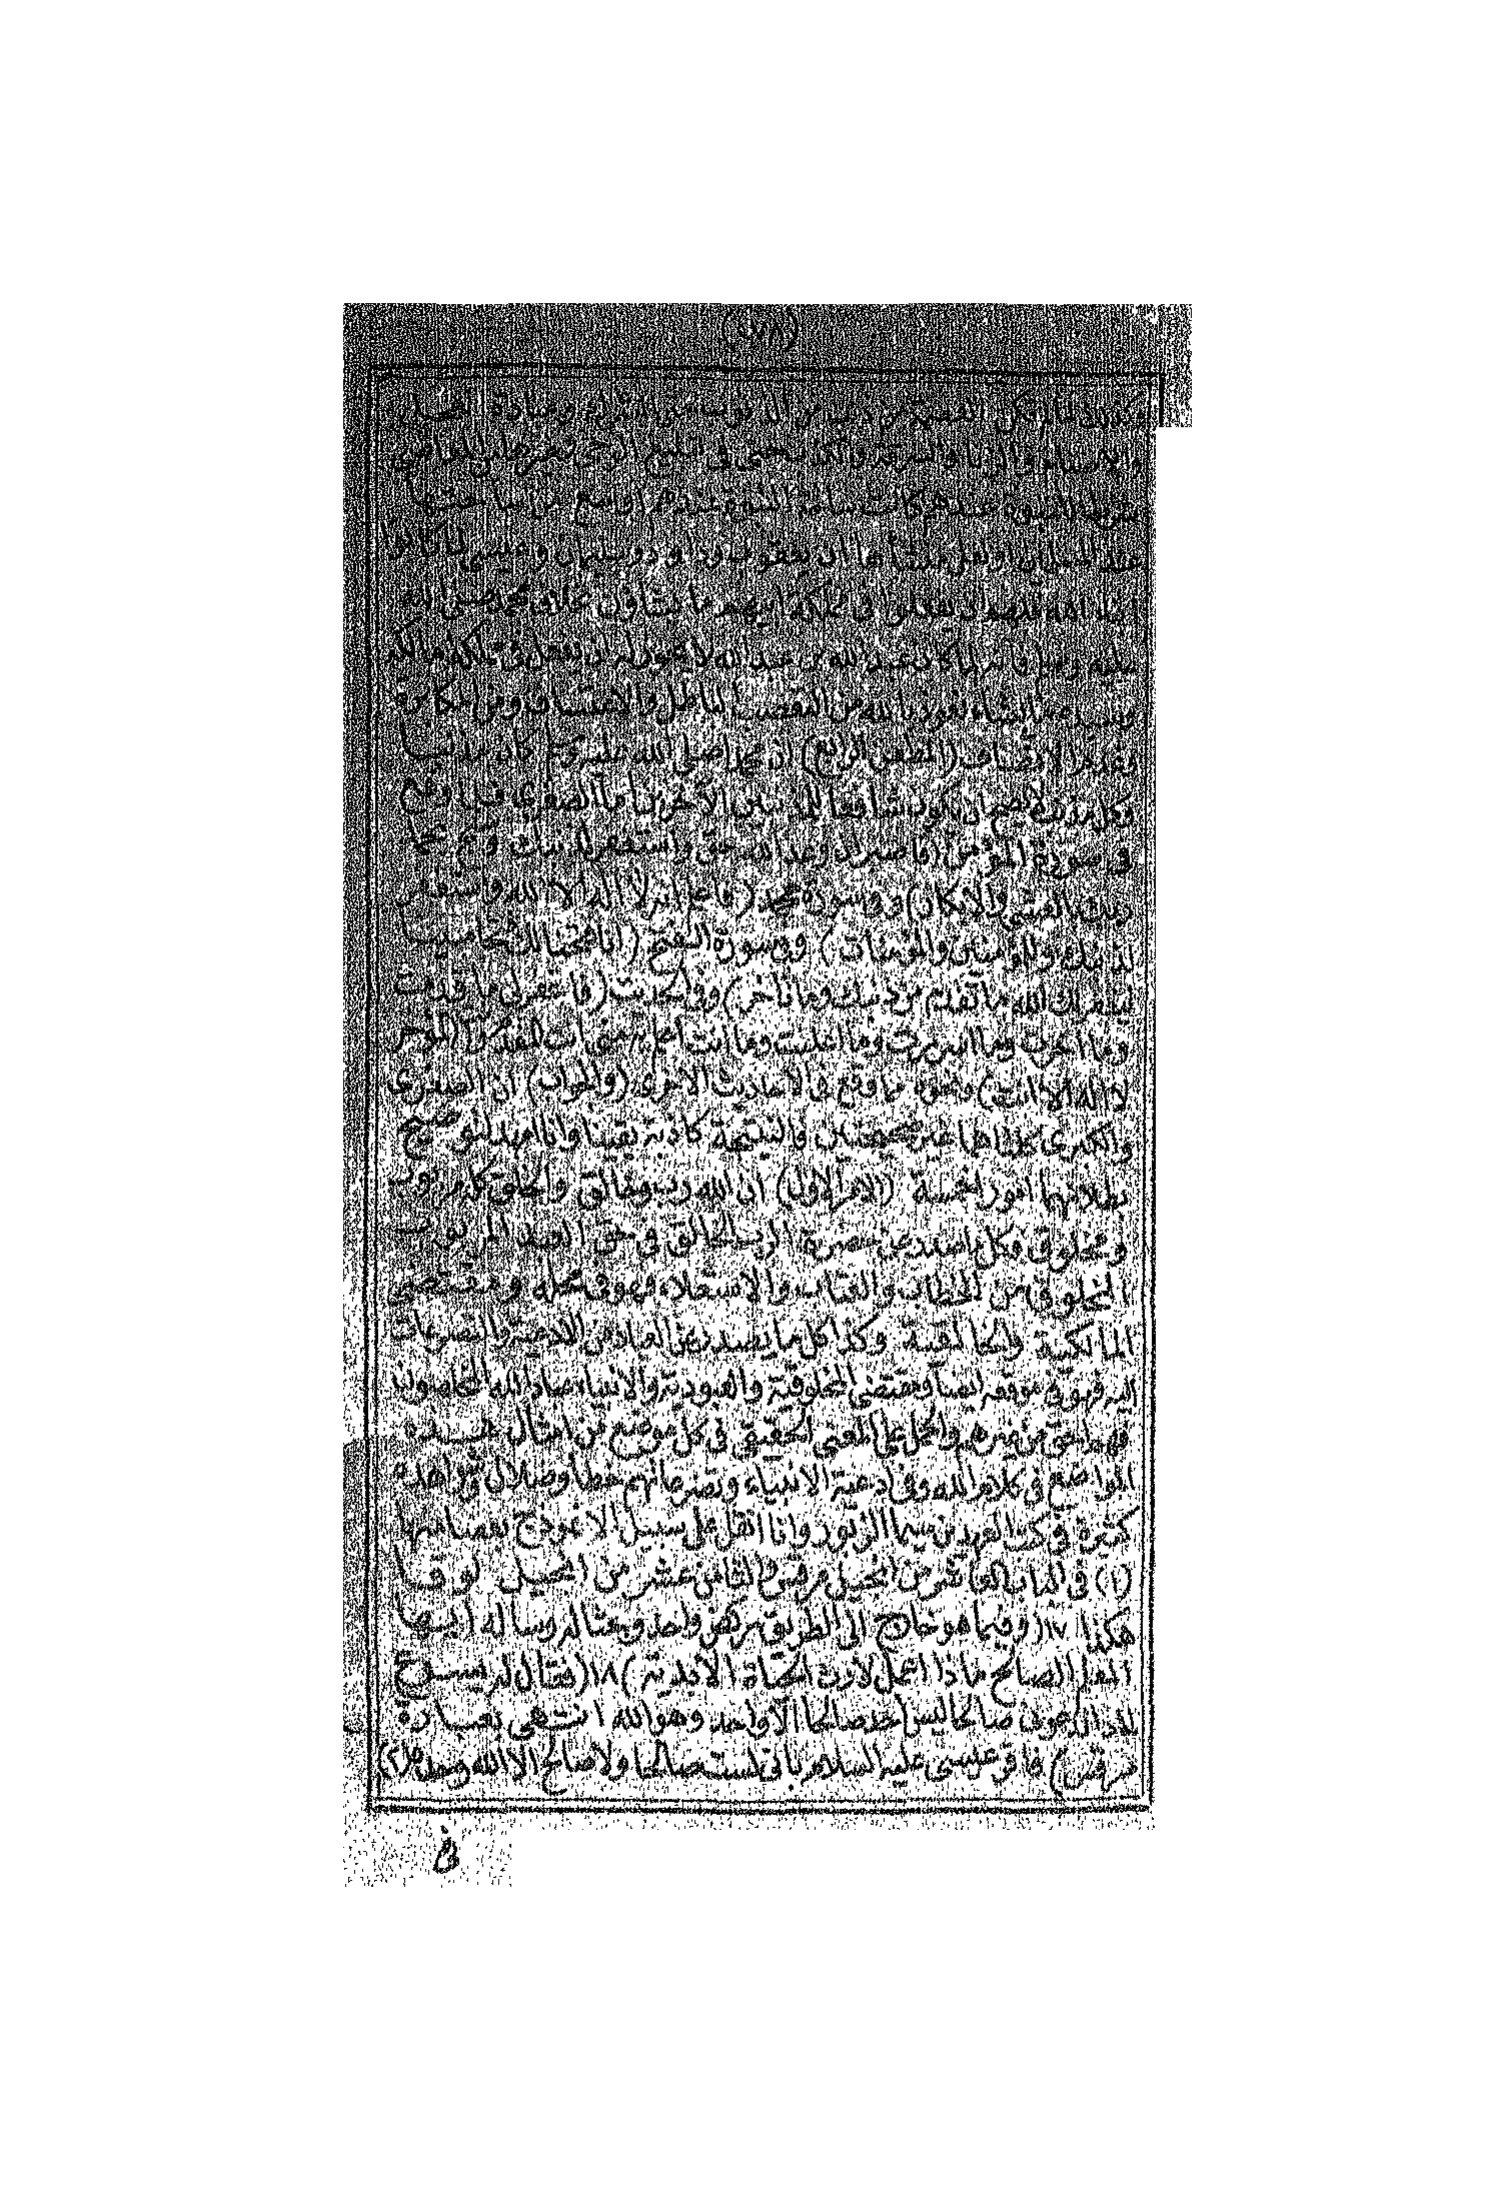 (٤٧٨)
العصمة من ذنب من الذنوب حتى الشرك وعبادة العجل
والاصنام والزنا والسرقة والكذب حتى في تبليغ الوحي وغيرها من المعاصي
شرطا للنبوة عندهم كانت ساحة النبوة عندهم اوسع من ساحتها
عند المسلمين ولعل منشأها ان يعقوب وداود وسليمان وعيسى لما كانوا
ابناء الله فلهم ان يفعلوا في مملكة ابيهم ما يشاؤن بخلاف محمد صلى الله
عليه وسلم فانه لما كان عبد الله من عبد الله لا يجوز له ان يفعل في ملك مالكه
وسيده ما يشاء نعوذ بالله من التعصب الباطل والاعتساف ومن المكابرة
وعدم الانصاف (المطعن الرابع) ان محمدا صلى الله عليه وسلم كان مذنبا
وكل مذنب لا يصح ان يكون شافعا للمذنبين الآخرين اما الصغرى فلما وقع
في سورة المؤمن (فاصبر ان وعد الله حق واستغفر لذنبك وسبح بحمد
ربك بالعشي والابكار) وفي سورة محمد (فاعلم انه لا اله الا الله واستغفر
لذنبك وللمؤمنين والمؤمنات) وفي سورة الفتح (انا فتحنا لك فتحا مبينا
ليغفر لك الله ما تقدم من ذنبك وما تأخر) وفي الحديث (فاغفر لي ما قدمت
وما اخرت وما اسررت وما اعلنت وما انت اعلم به مني انت المقدم وانت المؤخر
لا اله الا انت) ونحوه مما وقع في الاحاديث الاخرى (والجواب) ان الصغرى
والكبرى كلتاهما غير صحيحتين فالنتيجة كاذبة يقينا وانا امهد لتوضيح
بطلانهما امورا خمسة (الامر الاول) ان الله رب وخالق والخلق كله مربوب
ومخلوق فكل ما صدر عن حضرة الرب الخالق في حق العبد المربوب
المخلوق من الخطاب والعتاب والاستعلاء فهو في محله ومقتضى
المالكية والخالقية وكذا كل ما يصدر عن العباد من الادعية والتضرعات
اليه فهو في موقعه ايضا ومقتضى المخلوقية والعبودية والانبياء عباد الله المخلصون
فهم احق من غيرهم والحمل على المعنى الحقيقي في كل موضع من امثال هذه
المواضع في كلام الله وفي ادعية الانبياء وتضرعاتهم خطأ وضلال وشواهده
كثيرة في كتب العهدين سيما الزبور وانا انقل على سبيل الانموذج بعضا منها
(١) في الباب العاشر من انجيل مرقس والثامن عشر من انجيل لوقا
هكذا ١٧ (وفيما هو خارج الى الطريق ركض واحد وجثا له وساله ايها
المعلم الصالح ماذا اعمل لارث الحياة الابدية) ١٨ (فقال له يسوع
لماذا تدعوني صالحا ليس احد صالحا الا واحد وهو الله) انتهى بعبارة
مرقس) فاقر عيسى عليه السلام باني لست صالحا ولا صالح الا الله وحده (٢)
في